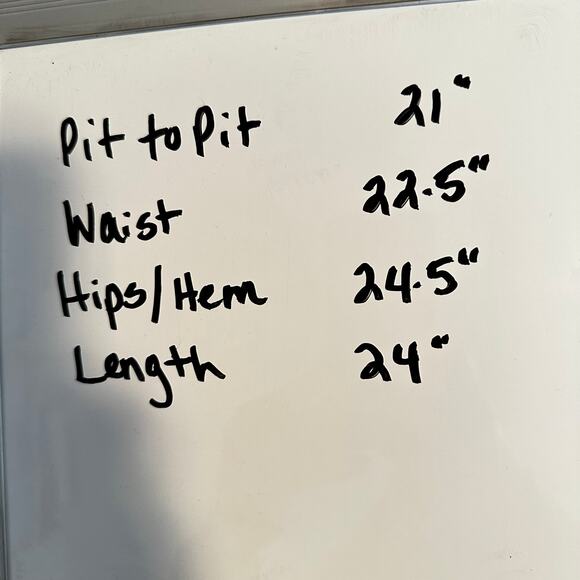 Pit to Pit 21"
Waist 22.5"
Hips/Hem 24.5"
Length 24"